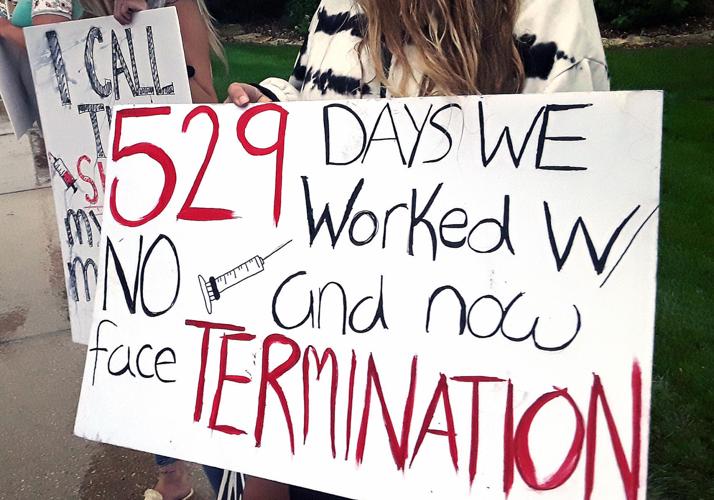 I CALL
my
529 DAYS WE
Worked W/
NO and now
face TERMINATION